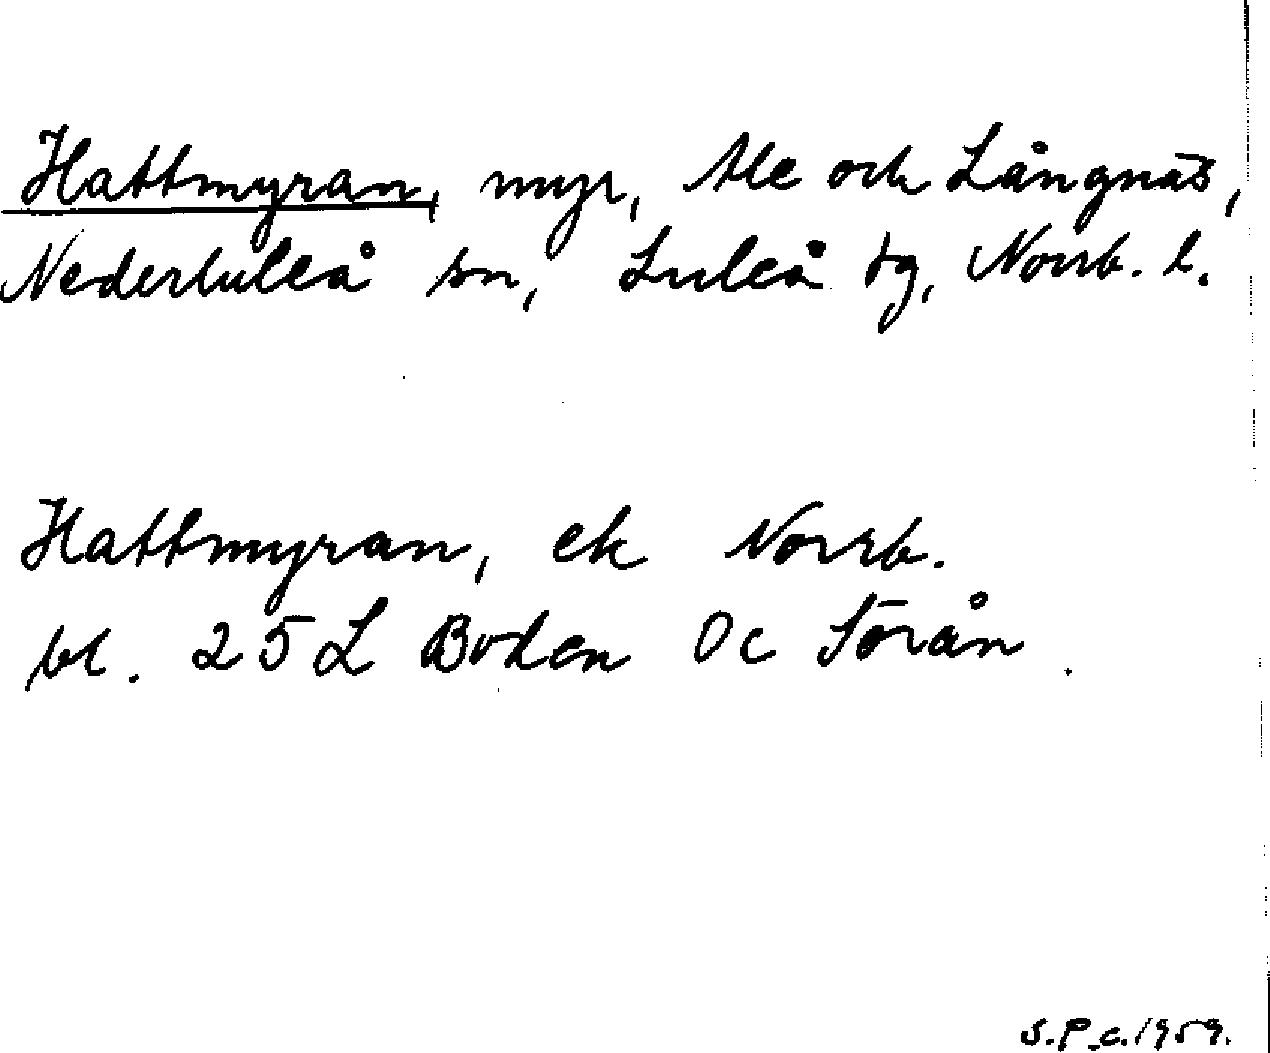 Hattmyran, myr, Ale och Långnäs,
Nederluleå sn, Luleå tg, Norrb. l.
Hattmyran, ek Norrb.
bl. 25L Boden 0c Sörån.
S.P.c.1959.